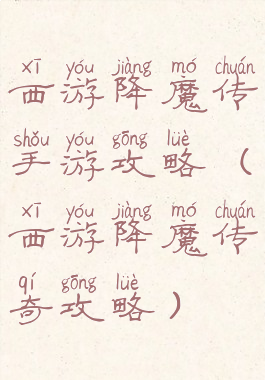 xī yóu jiàng mó chuán
西游降魔传
shǒu yóu gōng lüè
手游攻略（
xī yóu jiàng mó chuán
西游降魔传
qí gōng lüè
奇攻略）